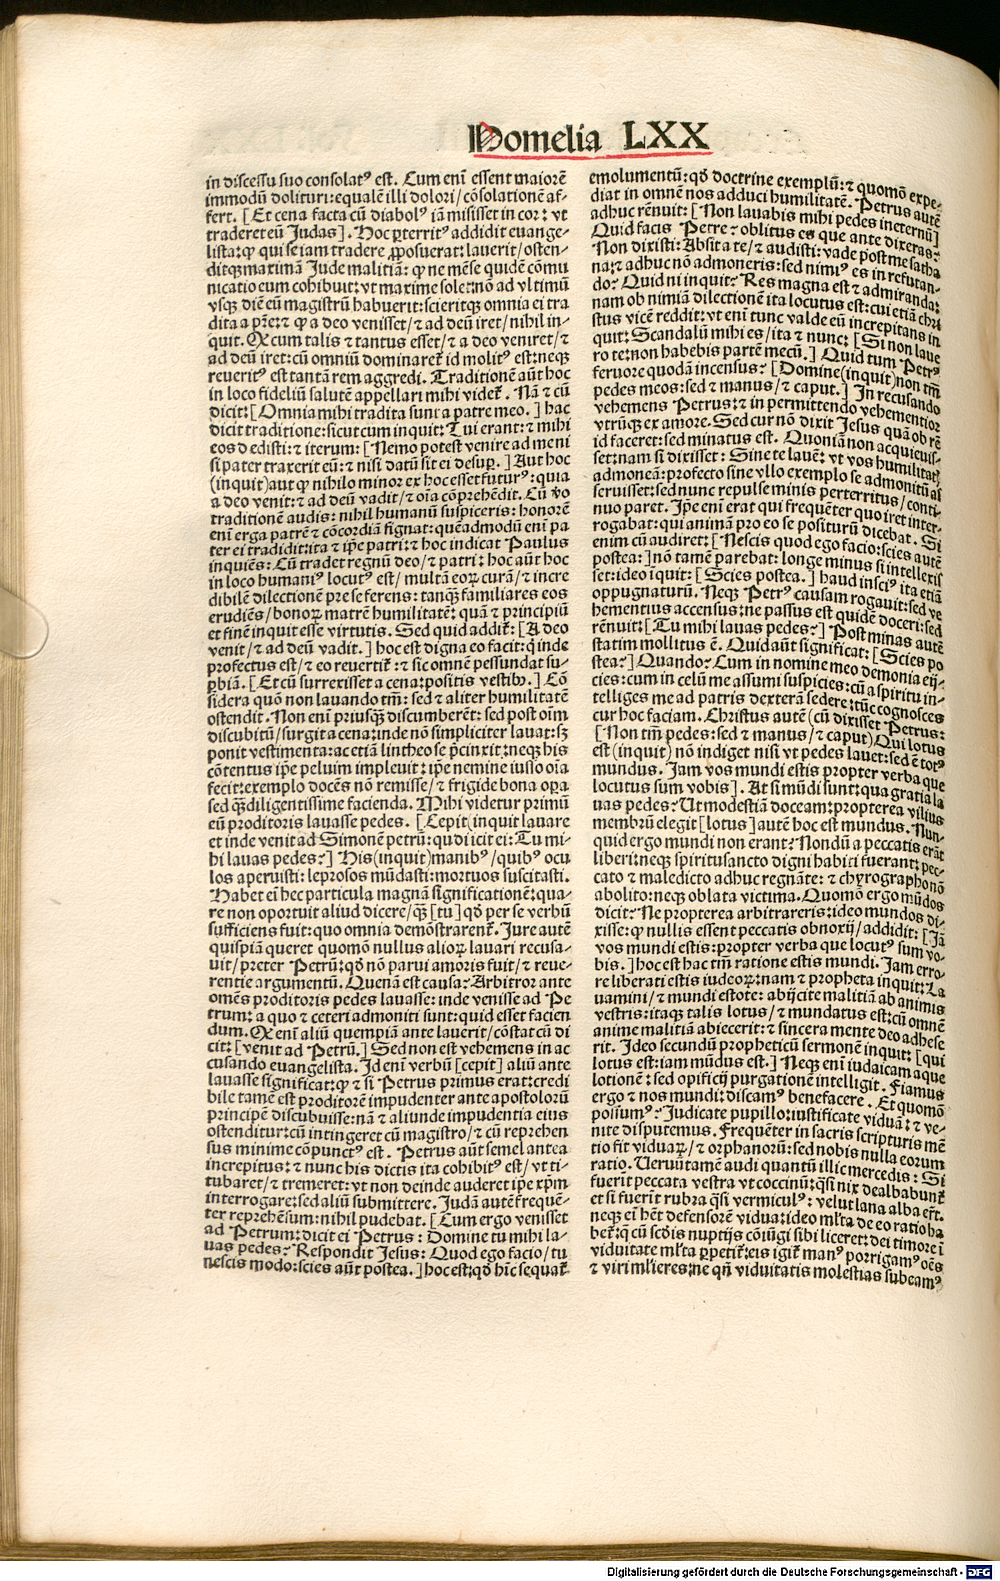 Homelia LXX
in discessu suo consolatꝰ est. Cum enī essent maiorē
immodū dolituri: equalē illi dolori / cōsolationē af⸗
fert. [Et cena facta cū diabolꝰ iā misisset in cor: vt
traderet eū Judas]. Hoc ꝑterritꝰ addidit euange⸗
lista: ꝙ qui se iam tradere ꝓposuerat: lauerit / osten⸗
ditqꝫ maximā Jude malitiā: ꝙ ne mēse quidē cōmu
nicatio eum cohibuit: vt maxime solet: nō ad vltimū
vsqꝫ diē eū magistrū habuerit: scieritqꝫ omnia ei tra
dita a p̄re: ⁊ ꝙ a deo venisset / ⁊ ad deū iret / nihil in⸗
quit. Qꝫ cum talis ⁊ tantus esset / ⁊ a deo veniret / ⁊
ad deū iret: cū omniū dominaret̄ id molitꝰ est: neqꝫ
reueritꝰ est tantā rem aggredi. Traditionē aūt hoc
in loco fideliū salutē appellari mihi videt̄. Nā ⁊ cū
dicit: [Omnia mihi tradita sunt a patre meo.] hac
dicit traditione: sicut cum inquit: Tui erant: ⁊ mihi
eos dedisti: ⁊ iterum: [Nemo potest venire ad me ni
si pater traxerit eū: ⁊ nisi datū sit ei desuꝑ.] Aut hoc
(inquit) aut ꝙ nihilo minor ex hoc esset futurꝰ: quia
a deo venit: ⁊ ad deū vadit / ⁊ oīa cōprehēdit. Cū v̄o
traditionē audis: nihil humanū suspiceris: honorē
enī erga patrē ⁊ cōcordiā signat: quēadmodū enī pa
ter ei tradidit: ita ⁊ ip̄e patri: ⁊ hoc indicat Paulus
inquiēs: Cū tradet regnū deo / ⁊ patri: hoc aūt hoc
in loco humaniꝰ locutꝰ est / multā eoꝝ curā / ⁊ incre
dibilē dilectionē pre se ferens: tanqꝫ familiares eos
erudiēs / bonoꝝ matrē humilitatē: quā ⁊ principiū
et finē inquit esse virtutis. Sed quid addit̄: [A deo
venit / ⁊ ad deū vadit.] hoc est digna eo facit: q̇ inde
profectus est / ⁊ eo reuertit̄: ⁊ sic omnē pessundat su⸗
ꝑbiā. [Et cū surrexisset a cena: positis vestibꝰ.] Cō
sidera quō non lauando tm̄: sed ⁊ aliter humilitatē
ostendit. Non enī priusqꝫ discumberēt: sed post oīm
discubitū / surgit a cena: inde nō simpliciter lauat: sꝫ
ponit vestimenta: ac etiā lintheo se p̄cinxit: neqꝫ his
cōtentus ip̄e peluim impleuit: ip̄e nemine iusso oīa
fecit: exemplo docēs nō remisse / ⁊ frigide bona oꝑa
sed qꝫdiligentissime facienda. Mihi videtur primū
eū proditoris lauasse pedes. [Cepit (inquit lauare
et inde venit ad Simonē petrū: qui dicit ei: Tu mi⸗
hi lauas pedes?] His (inquit) manibꝰ / quibꝰ ocu
los aperuisti: leprosos mūdasti: mortuos suscitasti.
Habet ei hec particula magnā significationē: qua⸗
re non oportuit aliud dicere / qꝫ [tu] qđ per se verbū
sufficiens fuit: quo omnia demōstrarent̄. Jure autē
quispiā queret quomō nullus alioꝝ lauari recusa⸗
uit / preter Petrū: qđ nō parui amoris fuit / ⁊ reue⸗
rentie argumentū. Quenā est causa? Arbitror ante
omēs proditoris pedes lauasse: inde venisse ad Pe
trum: a quo ⁊ ceteri admoniti sunt: quid esset facien
dum. Qꝫ enī aliū quempiā ante lauerit / cōstat cū di
cit: [venit ad Petrū.] Sed non est vehemens in ac
cusando euangelista. Id enī verbū [cepit] aliū ante
lauasse significat: ꝙ ⁊ si Petrus primus erat: credi
bile tamē est proditorē impudenter ante apostolorū
principē discubuisse: nā ⁊ aliunde impudentia eius
ostenditur: cū intingeret cū magistro / ⁊ cū reprehen
sus minime cōpunctꝰ est. Petrus aūt semel antea
increpitus: ⁊ nunc his dictis ita cohibitꝰ est / vt ti⸗
tubaret / ⁊ tremeret: vt non deinde auderet ip̄e xp̄m
interrogare: sed aliū submittere. Judā autē frequē⸗
ter reprehēsum: nihil pudebat. [Cum ergo venisset
ad Petrum: dicit ei Petrus: Domine tu mihi la⸗
uas pedes? Respondit Jesus: Quod ego facio / tu
nescis modo: scies aūt postea.] hoc est: qđ hīc sequat̄
emolumentū: qđ doctrine exemplū: ⁊ quomō expe⸗
diat in omnē nos adduci humilitatē. Petrus autē
adhuc rēnuit: [Non lauabis mihi pedes in eternū]
Quid facis Petre? oblitus es que ante dixeras?
Non dixisti: Absit a te / ⁊ audisti: vade post me satha
na: ⁊ adhuc nō admoneris: sed nimiꝰ es in refutan⸗
do? Quid ni inquit? Res magna est ⁊ admiranda:
nam ob nimiā dilectionē ita locutus est: cui etiā chri
stus vicē reddit: vt enī tunc valde eū increpitans in
quit: Scandalū mihi es / ita ⁊ nunc: [Si non laue
ro te: non habebis partē mecū.] Quid tum Petrꝰ
feruore quodā incensus? [Domine (inquit) non tm̄
pedes meos: sed ⁊ manus / ⁊ caput.] In recusando
vehemens Petrus: ⁊ in permittendo vehementior
vtrūqꝫ ex amore. Sed cur nō dixit Jesus quā ob rē
id faceret: sed minatus est. Quoniā non acquieuis⸗
set: nam si dixisset: Sine te lauē: vt vos humilitatꝫ
admoneā: profecto sine vllo exemplo se admonitū as
seruisset: sed nunc repulse minis perterritus / conti⸗
nuo paret. Ip̄e enī erat qui frequēter quo iret inter⸗
rogabat: qui animā pro eo se positurū dicebat. Si
enim cū audiret: [Nescis quod ego facio: scies autē
postea:] nō tamē parebat: longe minus si intellexis
set: ideo īquit: [Scies postea.] haud insciꝰ ita etiā
oppugnaturū. Neqꝫ Petrꝰ causam rogauit: sed ve
hementius accensus: ne passus est quidē doceri: sed
rēnuit: [Tu mihi lauas pedes?] Post minas autē
statim mollitus ē. Quid aūt significat: [Scies po
stea?] Quando? Cum in nomine meo demonia eij⸗
cies: cum in celū me assumi suspicies: cū a spiritu in⸗
telliges me ad patris dexterā sedere: tūc cognosces
cur hoc faciam. Christus autē (cū dixisset Petrus:
[Non tm̄ pedes: sed ⁊ manus / ⁊ caput) Qui lotus
est (inquit) nō indiget nisi vt pedes lauet: sed ē totꝰ
mundus. Jam vos mundi estis propter verba que
locutus sum vobis]. At si mūdi sunt: qua gratia la
uas pedes? Ut modestiā doceam: propterea vilius
membrū elegit [lotus] autē hoc est mundus. Nun⸗
quid ergo mundi non erant? Nondū a peccatis erāt
liberi: neqꝫ spiritusancto digni habiti fuerant: pec⸗
cato ⁊ maledicto adhuc regnāte: ⁊ chyrographo nō
abolito: neqꝫ oblata victima. Quomō ergo mūdos
dicit? Ne propterea arbitrareris: ideo mundos di⸗
xisse: ꝙ nullis essent peccatis obnoxij / addidit: [Jā
vos mundi estis: propter verba que locutꝰ sum vo⸗
bis.] hoc est hac tm̄ ratione estis mundi. Jam erro⸗
re liberati estis iudeoꝝ: nam ⁊ propheta inquit: La
uamini / ⁊ mundi estote: abijcite malitiā ab animis
vestris: itaqꝫ talis lotus / ⁊ mundatus est: cū omnē
anime malitiā abiecerit: ⁊ sincera mente deo adhese
rit. Ideo secundū propheticū sermonē inquit: [qui
lotus est: iam mūdus est.] Neqꝫ enī iudaicam aque
lotionē: sed opificij purgationē intelligit. Fiamus
ergo ⁊ nos mundi: discamꝰ benefacere. Et quomō
possumꝰ? Judicate pupillo: iustificate viduā: ⁊ ve⸗
nite disputemus. Frequēter in sacris scripturis mē
tio fit viduaꝝ / ⁊ orphanorū: sed nobis nulla eorum
ratio. Ueruntamē audi quantū illic mercedis: Si
fuerit peccata vestra vt coccinū: qꝫsi nix dealbabunt̄
et si fuerit rubra qꝫsi vermiculꝰ: velut lana alba erūt.
neqꝫ eī hēt defensorē vidua: ideo ml̄ta de eo ratio ha
bet̄: q̇ cū scd̓is nuptijs cōiūgi sibi liceret: dei timore ī
viduitate ml̄ta ꝑpetit̄: eis igit̄ manꝰ porrigamꝰ oēs
⁊ viri ml̄ieres: ne qn̄ viduitatis molestias subeamꝰ
Digitalisierung gefördert durch die Deutsche Forschungsgemeinschaft - DFG